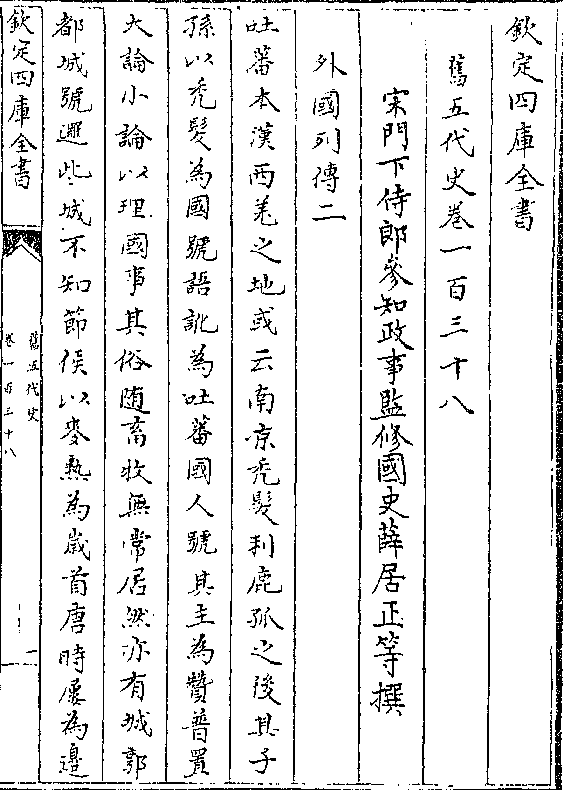 欽定四庫全書
舊五代史卷一百三十八
宋門下侍郎參知政事監修國史薛居正等撰
外國列傳二
吐蕃本漢西羌之地或云南凉禿髮利鹿孤之後其子
孫以禿髮為國號語訛為吐蕃國人號其主為贊普置
大論小論以理國事其俗随畜牧無常居然亦有城郭
都城號邏些城不知節候以麥熟為歲首唐時屢為邊
欽定四庫全書
舊五代史
卷一百三十八
一